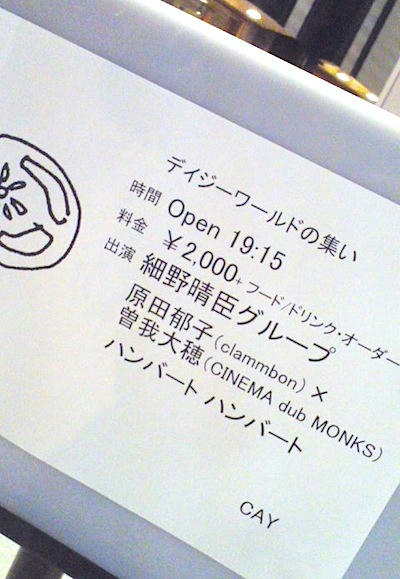 デイジーワールドの集い
時間 Open 19:15
料金 ￥2,000+フード/ドリンク・オーダー
出演 細野晴臣グループ
原田郁子(clammbon)×
曽我大穂(CINEMA dub MONKS)
ハンバート ハンバート
CAY